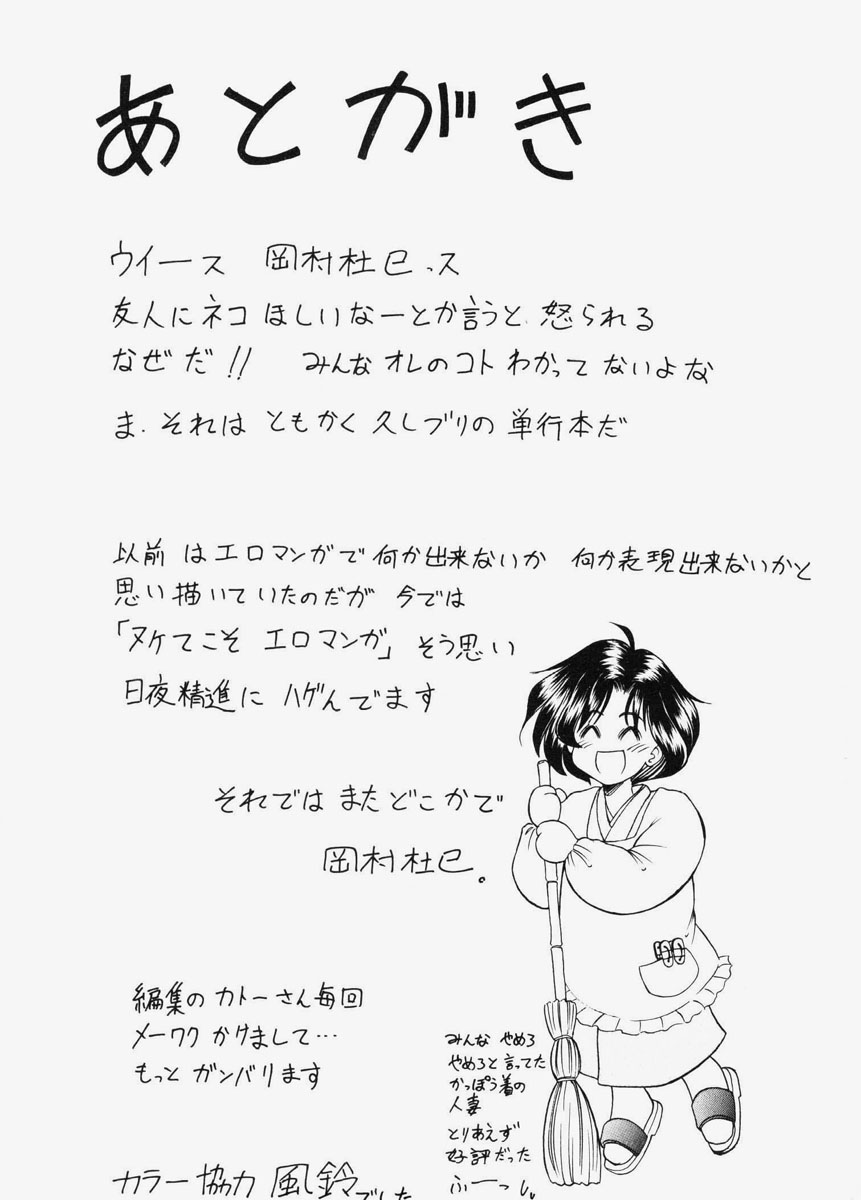 あとがき
ウイース 岡村杜巳っス
友人にネコ ほしいなーとか言うと、怒られる
なぜだ!! みんな オレのコト わかって ないよな
ま、それは ともかく 久しブリの 単行本だ
以前 はエロマンガで 何か出来ないか 何か表現出来ないかと
思い 描いていたのだが 今では
「ヌケてこそ エロマンガ」 そう思い
日夜精進に ハゲんでます
それでは またどこかで
岡村杜巳。
編集の カトーさん毎回
メーワク かけまして…
もっと ガンバリます
みんな やめろ
やめろと 言ってた
かっぽう着の
人妻
とりあえず
好評だった
ふーっ
カラー協力 風鈴でした